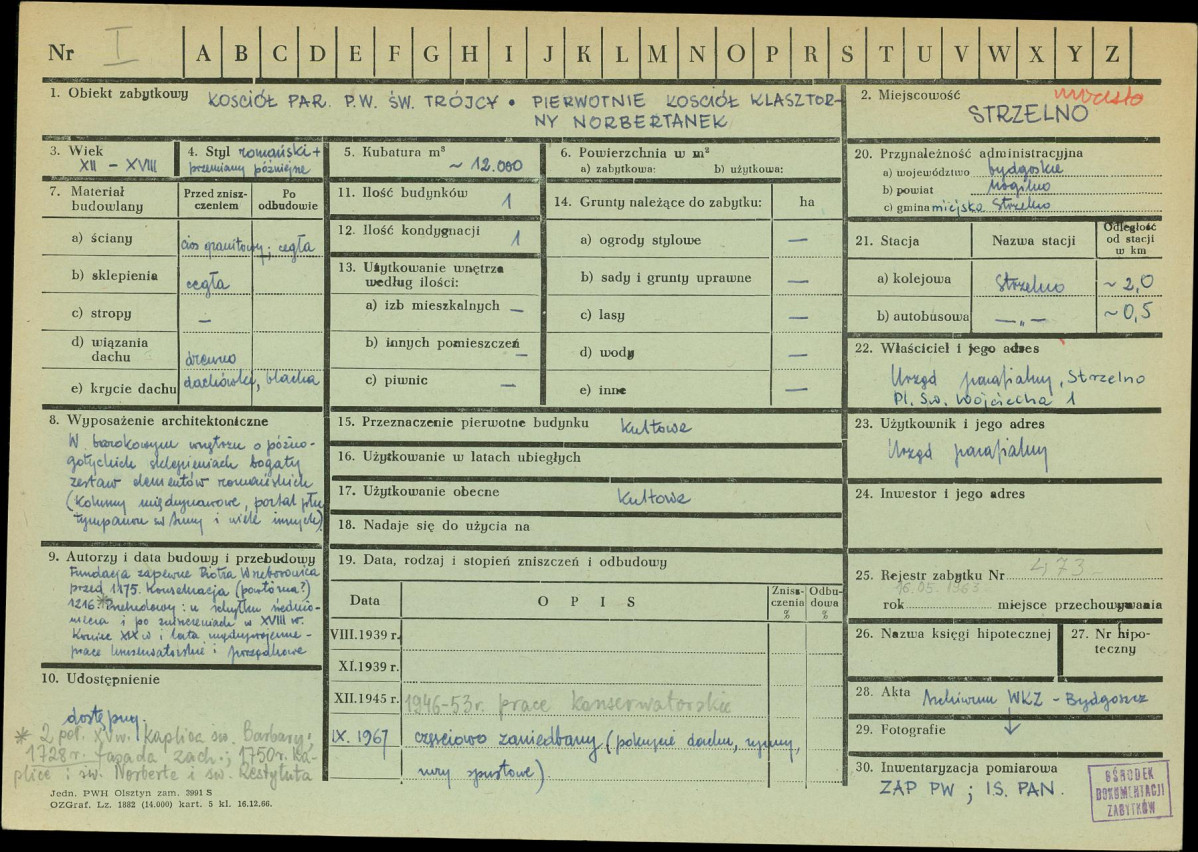 Nr I A B C D E F G H I J K L M N O P R S T U V W X Y Z
1. Obiekt zabytkowy KOŚCIÓŁ PAR. P.W. ŚW. TRÓJCY • PIERWOTNIE KOSCIÓŁ KLASZTOR-
NY NORBERTANEK
2. Miejscowość miasto
STRZELNO
3. Wiek
XII – XVIII
4. Styl romański +
przemiany późniejsze
5. Kubatura m³
~ 12.000
6. Powierzchnia w m²
a) zabytkowa: b) użytkowa:
7. Materiał budowlany
Przed znisz-
czeniem
Po
odbudowie
a) ściany cios granitowy; cegła
b) sklepienia cegła
c) stropy —
d) wiązania
dachu drewno
e) krycie dachu dachówka, blacha
8. Wyposażenie architektoniczne
W barokowym wnętrzu o późno-
gotyckich sklepieniach bogaty
zestaw elementów romańskich
(kolumny międzynawowe, portal płn
tympanon św Anny i wiele innych)
9. Autorzy i data budowy i przebudowy
Fundacja zapewne Piotra Wszeborowica
przed 1175. Konsekracja (powtórna?)
1216.* Przebudowy: u schyłku średnio-
wiecza i po zniszczeniach w XVIII w.
Koniec XIX w i lata międzywojenne -
prace konserwatorskie i porządkowe
10. Udostępnienie
dostępny
* 2 poł. XV w. kaplica św. Barbary;
1728 r. fasada zach.; 1750 r. ka-
plice: św. Norberta i św. Restytuta
Jedn. PWH Olsztyn zam. 3991 S
OZGraf. Lz. 1882 (14.000) kart. 5 kl. 16.12.66.
11. Ilość budynków 1
12. Ilość kondygnacji 1
13. Użytkowanie wnętrza
według ilości:
a) izb mieszkalnych —
b) innych pomieszczeń —
c) piwnic —
14. Grunty należące do zabytku: ha
a) ogrody stylowe —
b) sady i grunty uprawne —
c) lasy —
d) wody —
e) inne —
15. Przeznaczenie pierwotne budynku kultowe
16. Użytkowanie w latach ubiegłych
17. Użytkowanie obecne kultowe
18. Nadaje się do użycia na
19. Data, rodzaj i stopień zniszczeń i odbudowy
Data O P I S Znisz-
czenia
% Odbu-
dowa
%
VIII.1939 r.
XI.1939 r.
XII.1945 r. 1946-53r. prace konserwatorskie
IX. 1967 częściowo zaniedbany (pokrycie dachu, rynny,
rury spustowe).
20. Przynależność administracyjna
a) województwo bydgoskie
b) powiat Mogilno
c) gmina miejska Strzelno
21. Stacja Nazwa stacji Odległość
od stacji
w km
a) kolejowa Strzelno ~ 2,0
b) autobusowa —„— ~ 0,5
22. Właściciel i jego adres
Urząd parafialny, Strzelno
Pl. Św. Wojciecha 1
23. Użytkownik i jego adres
Urząd parafialny
24. Inwestor i jego adres
25. Rejestr zabytku Nr 473
16.05.1963
rok miejsce przechowywania
26. Nazwa księgi hipotecznej
27. Nr hipo-
teczny
28. Akta Archiwum WKZ - Bydgoszcz
29. Fotografie
30. Inwentaryzacja pomiarowa
ZAP PW ; IS. PAN.
OŚRODEK
DOKUMENTACJI
ZABYTKÓW